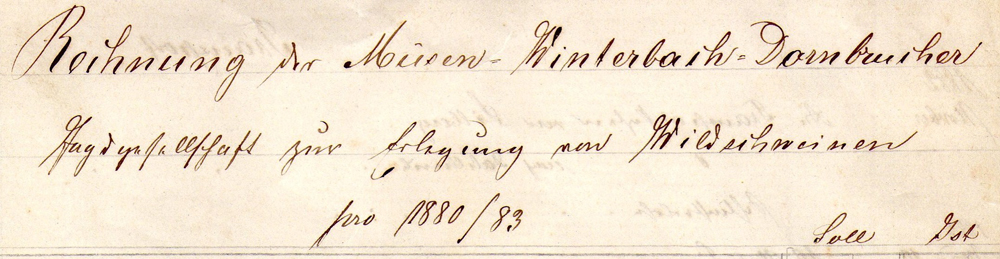 Rechnung der Müsen-Winterbach-Dornbrucher
Jagdgesellschaft zur Erlegung von Wildschweinen
pro 1880/83
Soll Ist